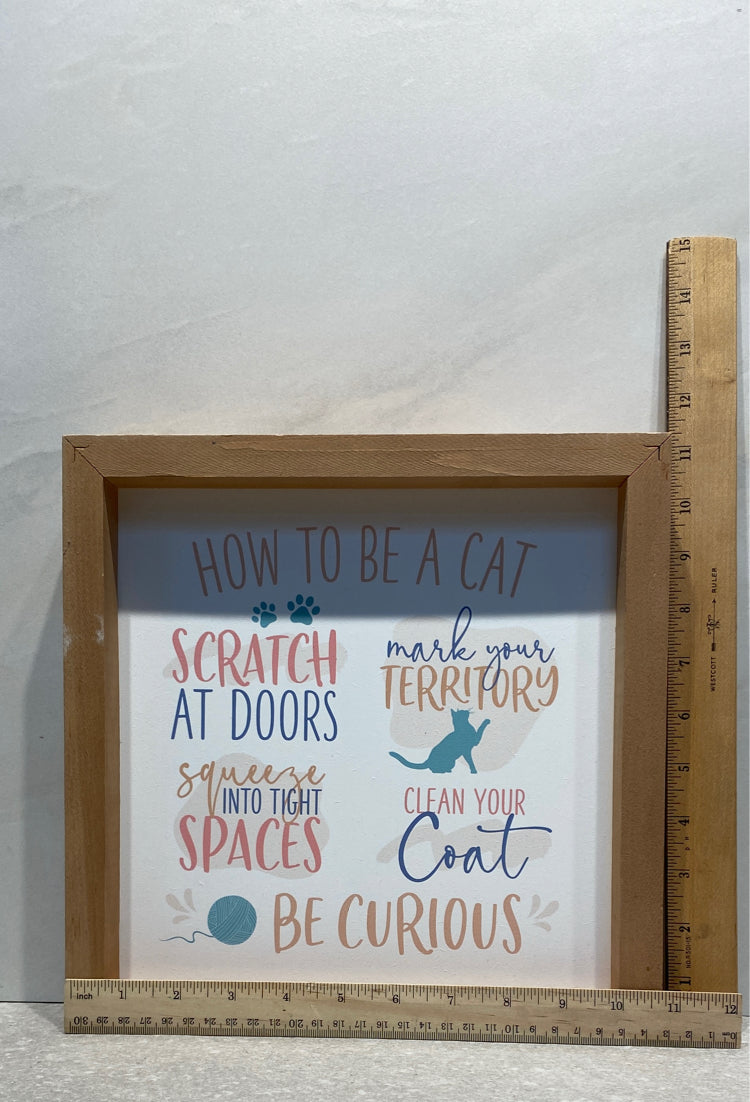 HOW TO BE A CAT
SCRATCH
AT DOORS
mark your
TERRITORY
squeeze
INTO TIGHT
SPACES
CLEAN YOUR
Coat
BE CURIOUS
15
14
13
12
11
10
9
8
7
6
5
4
3
2
1
WESTCOTT RULER
inch 1 2 3 4 5 6 7 8 9 10 11 12
30 29 28 27 26 25 24 23 22 21 20 19 18 17 16 15 14 13 12 11 10 9 8 7 6 5 4 3 2 1